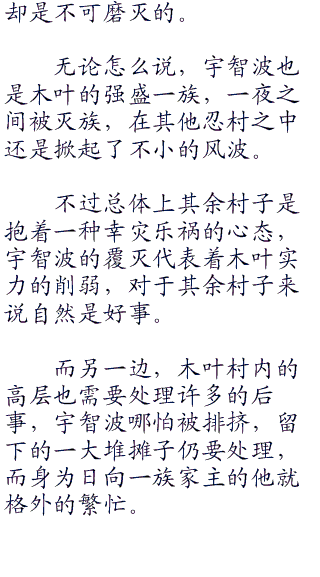 却是不可磨灭的。
无论怎么说，宇智波也
是木叶的强盛一族，一夜之
间被灭族，在其他忍村之中
还是掀起了不小的风波。
不过总体上其余村子是
抱着一种幸灾乐祸的心态，
宇智波的覆灭代表着木叶实
力的削弱，对于其余村子来
说自然是好事。
而另一边，木叶村内的
高层也需要处理许多的后
事，宇智波哪怕被排挤，留
下的一大堆摊子仍要处理，
而身为日向一族家主的他就
格外的繁忙。